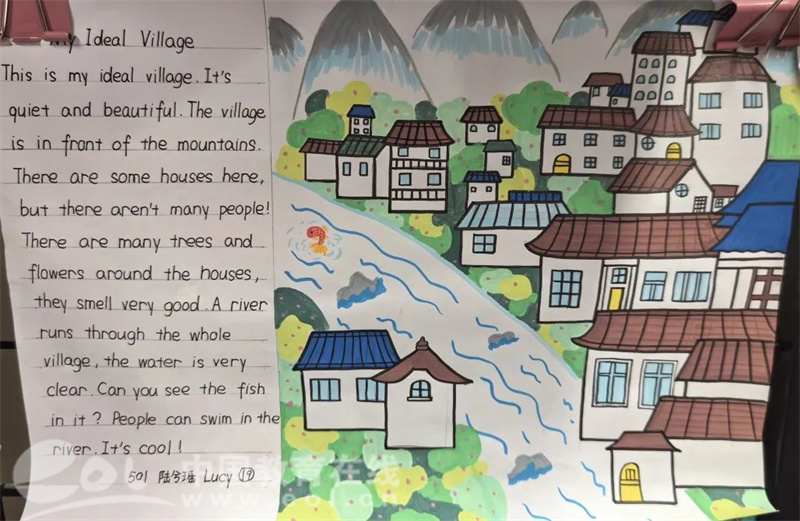 My Ideal Village
This is my ideal village. It's
quiet and beautiful. The village
is in front of the mountains.
There are some houses here,
but there aren't many people!
There are many trees and
flowers around the houses,
they smell very good. A river
runs through the whole
village, the water is very
clear. Can you see the fish
in it? People can swim in the
river. It's cool!
501 陆兮瑶 Lucy ⑲
eol 中国教育在线
www.eol.cn